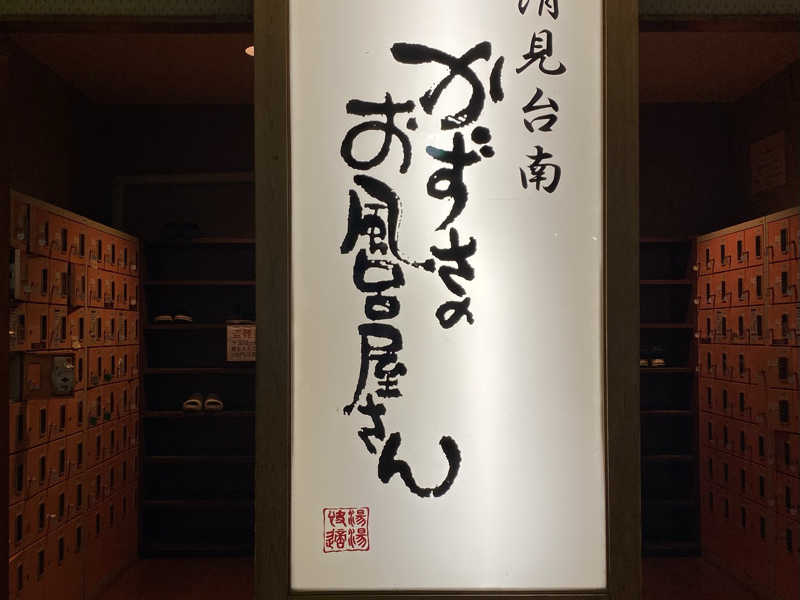 清見台南
かずさの
お風呂屋さん
湯湯